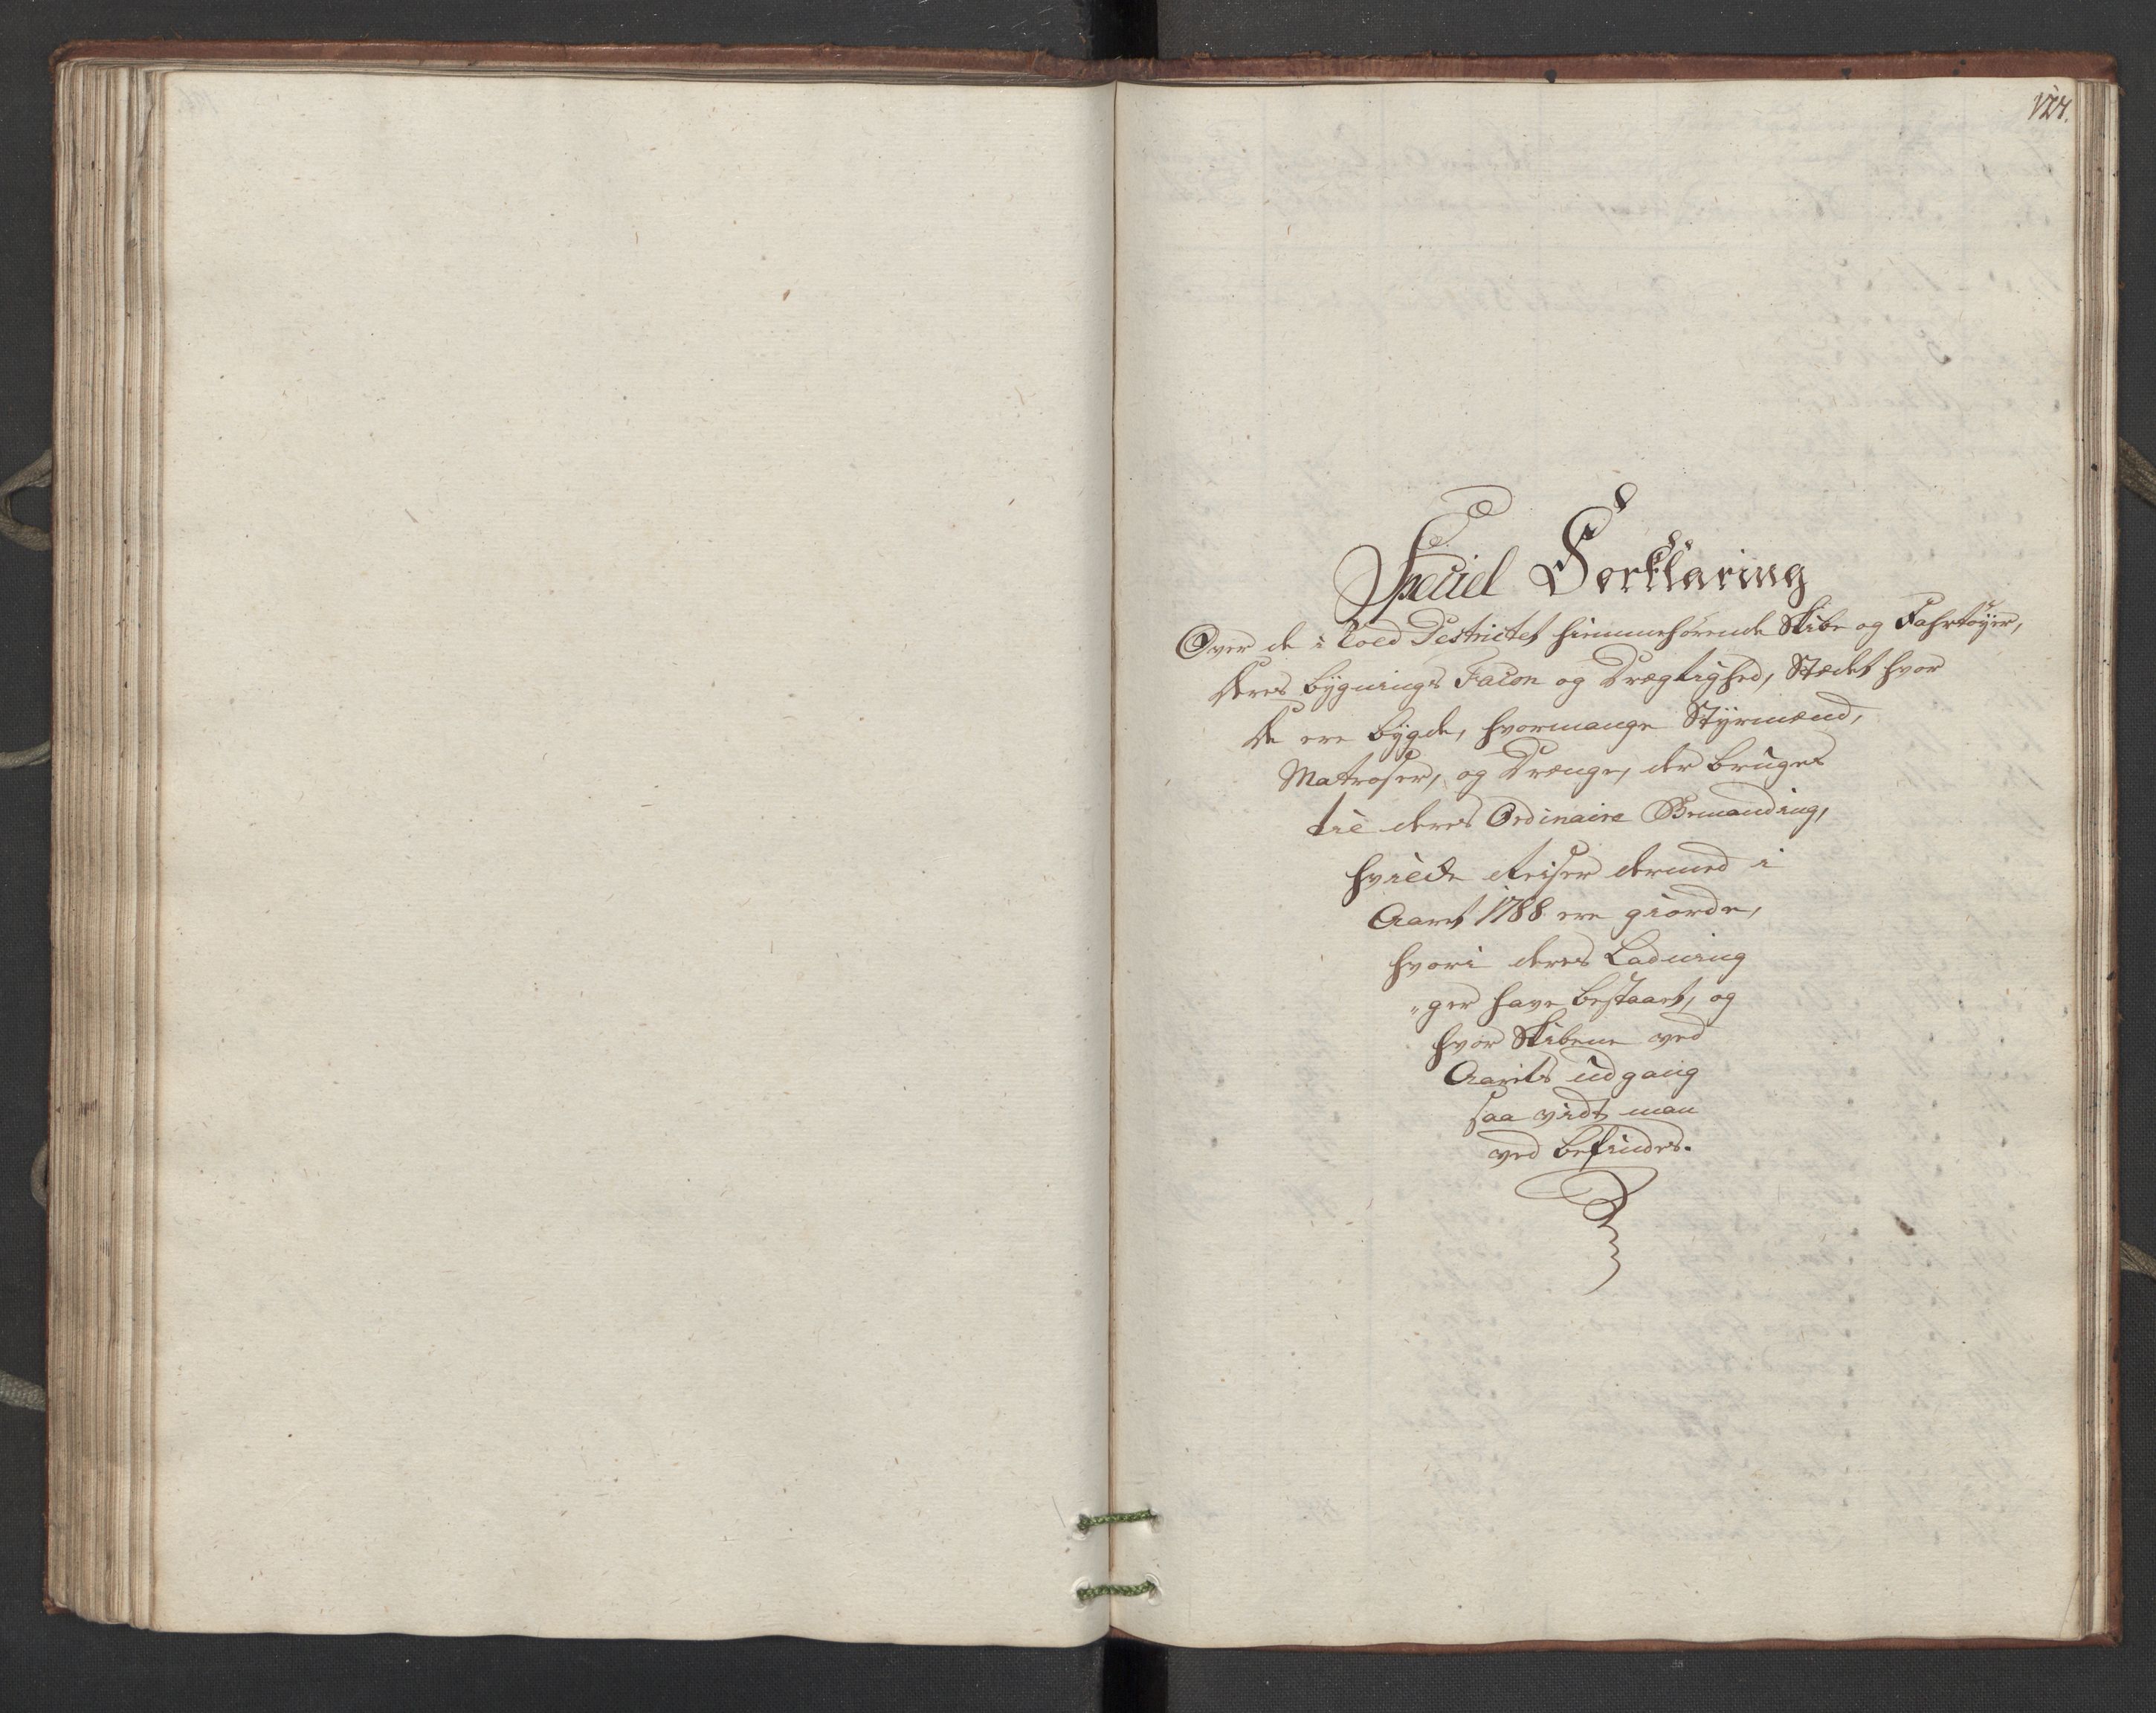 127.
Speciel Forklaring
Over de i Told Destrictet hiemmehørende Skibe og Fahrtøyer,
deres bÿgnings Facon og Drægtighed, Stædet hvor
de ere bÿgde, hvormange Stÿrmænd,
Matroser, og Drænge, der bruges
til deres Ordinaire Bemanding,
hvilcke Reiser dermed i
Aaret 1788 ere giorde,
hvori deres Ladning
"ger have bestaaet, og
hvor Skibene ved
Aarets udgang
saa vidt man
ved befindes.